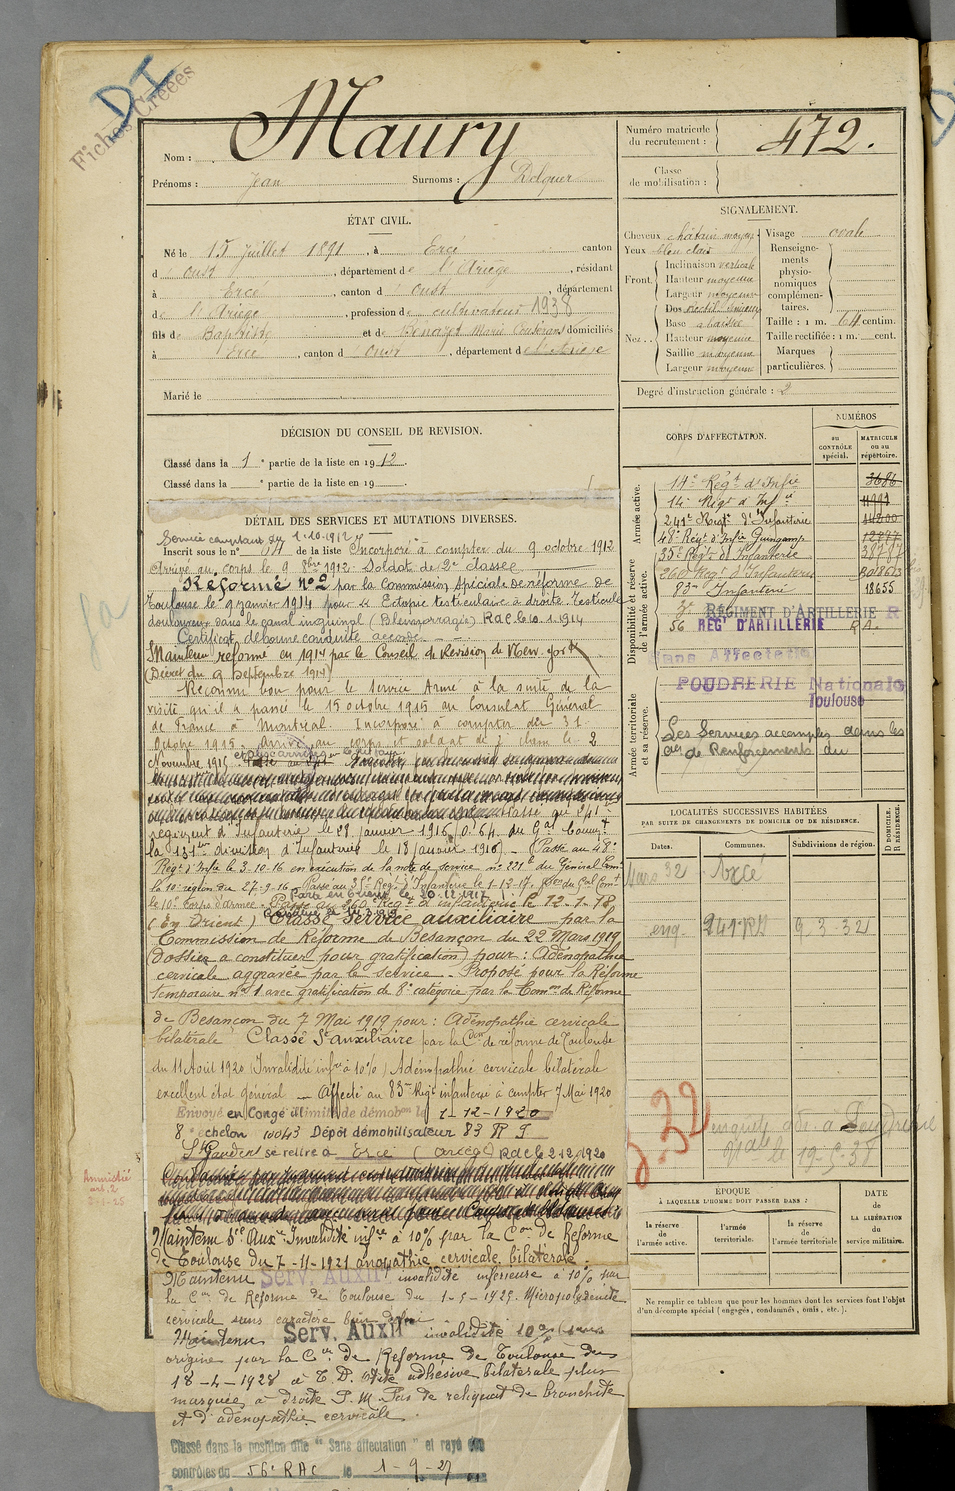 D I
Fiches Créées
Nom : Maury
Prénoms : Jean Surnoms : Dolquer
Numéro matricule du recrutement : 472.
Classe de mobilisation :
ÉTAT CIVIL.
Né le 15 juillet 1891, à Ercé canton
d'Oust, département de l'Ariège, résidant
à Ercé, canton d'Oust, département
de l'Ariège, profession de cultivateur 1938
fils de Baptiste et de Benazet Marie domiciliés
à Ercé, canton d'Oust, département de l'Ariège
Marié le
SIGNALEMENT.
Cheveux châtain moyen
Yeux bleu clair
Front. Inclinaison verticale
Hauteur moyenne
Largeur moyenne
Nez. Dos rectil. sinueux
Base abaissée
Hauteur moyenne
Saillie moyenne
Largeur moyenne
Visage ovale
Renseignements physionomiques complémentaires.
Taille : 1 m. 64 centim.
Taille rectifiée : 1 m. cent.
Marques particulières.
Degré d'instruction générale : 2
DÉCISION DU CONSEIL DE REVISION.
Classé dans la 1e partie de la liste en 1912.
Classé dans la e partie de la liste en 19 .
DÉTAIL DES SERVICES ET MUTATIONS DIVERSES.
Service comptant du 1.10.1912
Inscrit sous le n° 64 de la liste Incorporé à compter du 9 octobre 1912
Arrivé au corps le 9 8bre 1912. Soldat de 2e classe
Réformé n° 2 par la Commission spéciale de réforme de
Toulouse le 9 janvier 1914 pour « Ectopie testiculaire à droite. Testicule
douloureux dans le canal inguinal (Blennorragie). RdC le 10.1.1914
Certificat de bonne conduite accordé
Maintenu réformé en 1914 par le Conseil de Revision de New-York
(Décret du 9 septembre 1914)
Reconnu bon pour le service Armé à la suite de la
visite qu'il a passé le 15 octobre 1915 au Consulat Général
de France à Montréal. Incorporé à compter du 31
Octobre 1915. Arrivé au corps et soldat de 2e classe le 2
Novembre 1915
Passé au 241e
régiment d'Infanterie le 29 janvier 1916 (O. 64 du Gal Commt
la 131eme division d'Infanterie le 18 janvier 1916) - Passé au 48e
Régt d'Infie le 3-10-16 en exécution de la note de service n° 221 du Général Comt
la 10e région du 27-9-16. Passé au 35e Régt d'Infanterie le 1-12-17.
Parti en Orient le 20-12-1917
le 10e Corps d'armée. Passé au 260e Régt d'infanterie le 12-1-18,
(En Orient) Classé Service auxiliaire par la
Commission de Réforme de Besançon du 22 Mars 1919
(dossier à constituer pour gratification) pour : Adénopathie
cervicale aggravée par le service. Proposé pour la Réforme
temporaire n° 1 avec gratification de 8e catégorie par la Comon de Réforme
de Besançon du 7 Mai 1919 pour : Adénopathie cervicale
bilatérale Classé St auxiliaire par la Con de réforme de Toulouse
du 11 Août 1920 (Invalidité infre à 10%) Adénopathie cervicale bilatérale
excellent état général — Affecté au 83e Régt infanterie à compter 7 Mai 1920
Envoyé en Congé illimité de démobon le 1-12-1920
8e échelon 10043 Dépôt démobilisateur 83 R I
St Gaudens se retire à Ercé (Ariège) RdC le 2.12.1920
Amnistié
art. 2
Maintenu Sce Aux. Invalidité infre à 10% par la Con de Réforme
de Toulouse du 7-11-1921 adénopathie cervicale bilatérale
Maintenu Serv. Auxil. invalidité inférieure à 10% par
la Con de Réforme de Toulouse du 1-5-1925. Micropolyadénite
cervicale sans caractère
Maintenu Serv. Auxil. invalidité 10% sans
origine par la Con de Réforme de Toulouse du
18-4-1928 à T.D. otite adhésive bilatérale plus
marquée à droite P.M. Pas de reliquat de bronchite
et d'adénopathie cervicale.
Classé dans la position dite "Sans affectation" et rayé des
contrôles du 56e RAC le 1-9-27
CORPS D'AFFECTATION.
NUMÉROS
au CONTRÔLE spécial.
MATRICULE ou au répertoire.
Armée active.
14e Régt d'Infie 3686
14e Régt d'Infie
241e Régt d'Infanterie
48e Régt d'Infie Guingamp
Disponibilité et réserve de l'armée active.
35e Régt d'Infanterie
260 Régt d'Infanterie
83e Infanterie 18655
3e RÉGIMENT D'ARTILLERIE
56 REGt D'ARTILLERIE
Sans Affectation
POUDRERIE Nationale
Toulouse
Armée territoriale et sa réserve.
Les Services accomplis dans les
de Renforcements du
LOCALITÉS SUCCESSIVES HABITÉES
PAR SUITE DE CHANGEMENTS DE DOMICILE OU DE RÉSIDENCE.
Dates. Communes. Subdivisions de région.
D DOMICILE. R RÉSIDENCE.
Mars 32 Ercé
9-3-321
832
19-5-38
ÉPOQUE
À LAQUELLE L'HOMME DOIT PASSER DANS :
la réserve de l'armée active.
l'armée territoriale.
la réserve de l'armée territoriale
DATE DE LA LIBÉRATION du service militaire.
Ne remplir ce tableau que pour les hommes dont les services font l'objet
d'un décompte spécial (engagés, condamnés, omis, etc.).